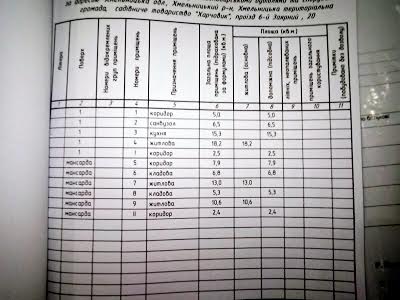 за адресою Хмельницька обл., Хмельницький р-н, Хмельницька територіальна
громада, садівниче товариство "Харчовик", проїзд 6-й Західний, 20
Літера
Поверх
Номери відокремлених груп приміщень
Номери приміщень
Призначення приміщень
Загальна площа приміщень (підрахована за формулами) (кв.м)
Площа (кв.м)
житлова (основна)
допоміжна (підсобна)
літніх, неопалюваних приміщень
приміщень загального користування
Примітки (побудовано без дозволу)
1 2 3 4 5 6 7 8 9 10 11
1 1 коридор 5,0 5,0
1 2 санвузол 6,5 6,5
1 3 кухня 15,3 15,3
1 4 житлова 18,2 18,2
1 І коридор 2,5 2,5
мансарда 5 коридор 7,9 7,9
мансарда 6 кладова 6,8 6,8
мансарда 7 житлова 13,0 13,0
мансарда 8 кладова 5,3 5,3
мансарда 9 житлова 10,6 10,6
мансарда ІІ коридор 2,4 2,4